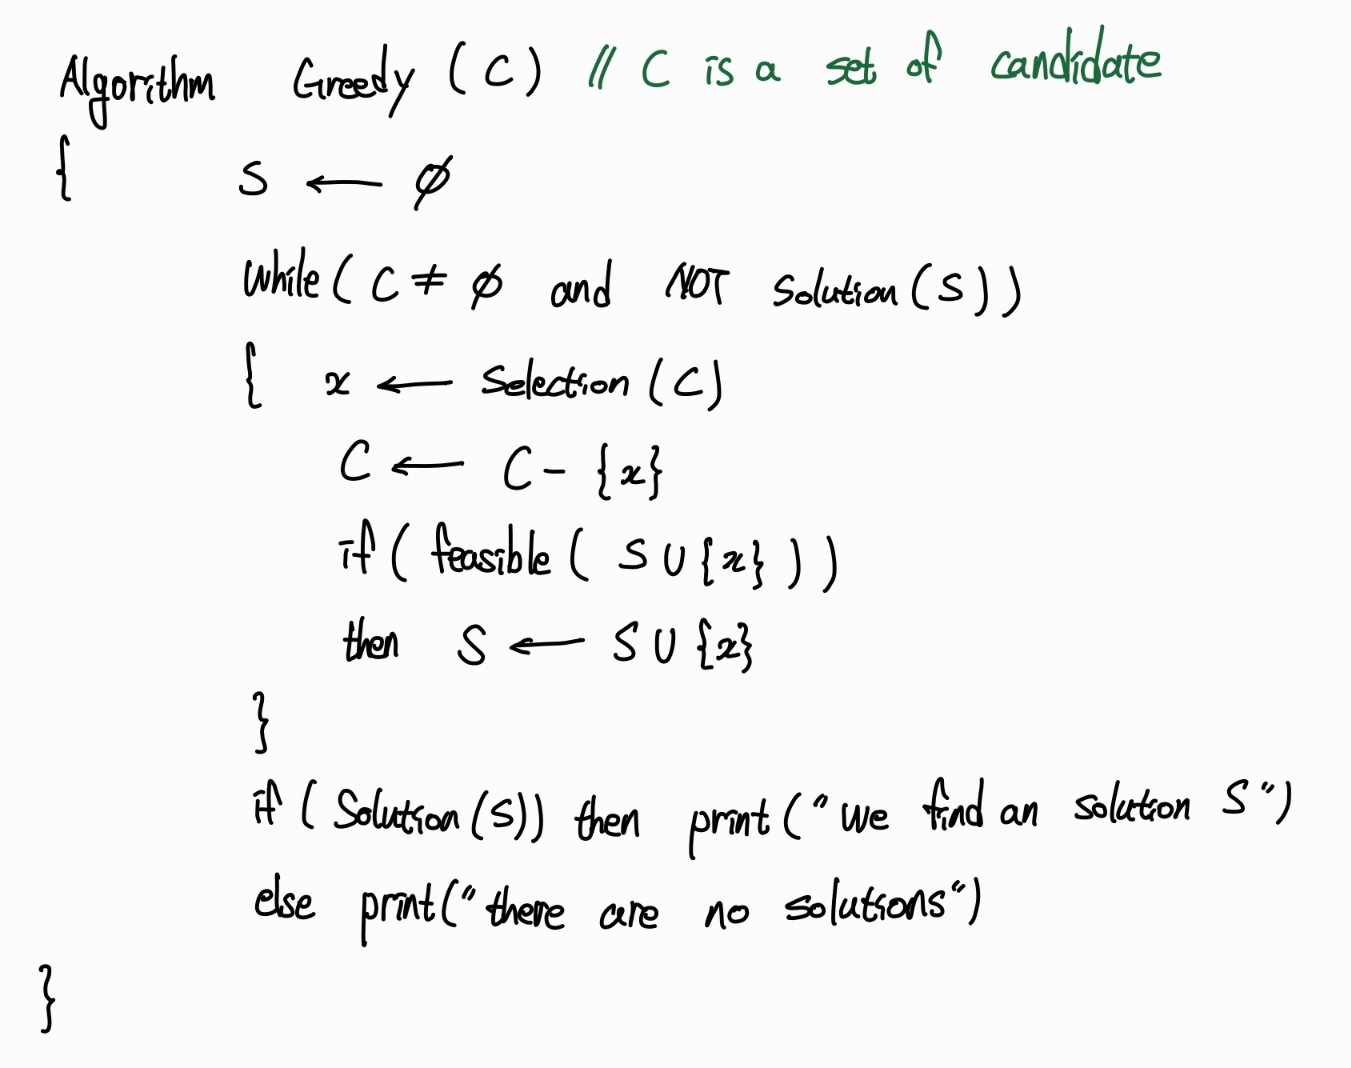 Algorithm Greedy (C) // C is a set of candidate
{ S ← ∅
while( C ≠ ∅ and NOT Solution(S))
{ x ← Selection(C)
C ← C - {x}
if( feasible( S ∪ {x} ) )
then S ← S ∪ {x}
}
if( Solution(S)) then print("we find an solution S")
else print("there are no solutions")
}